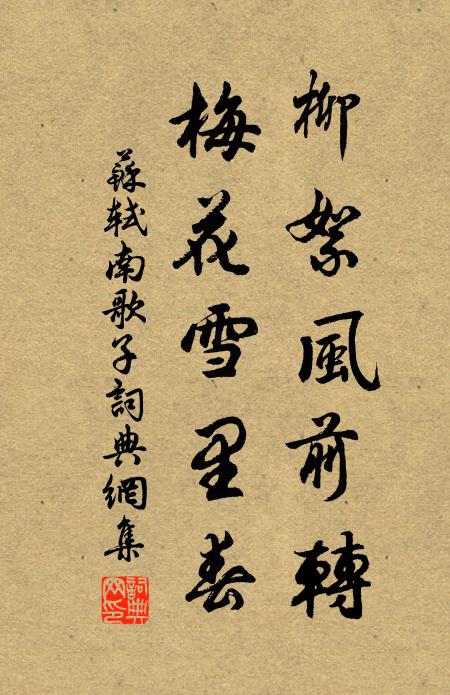 柳絮風前轉
梅花雪里春
蘇軾南歌子詞典網集
詞典網印